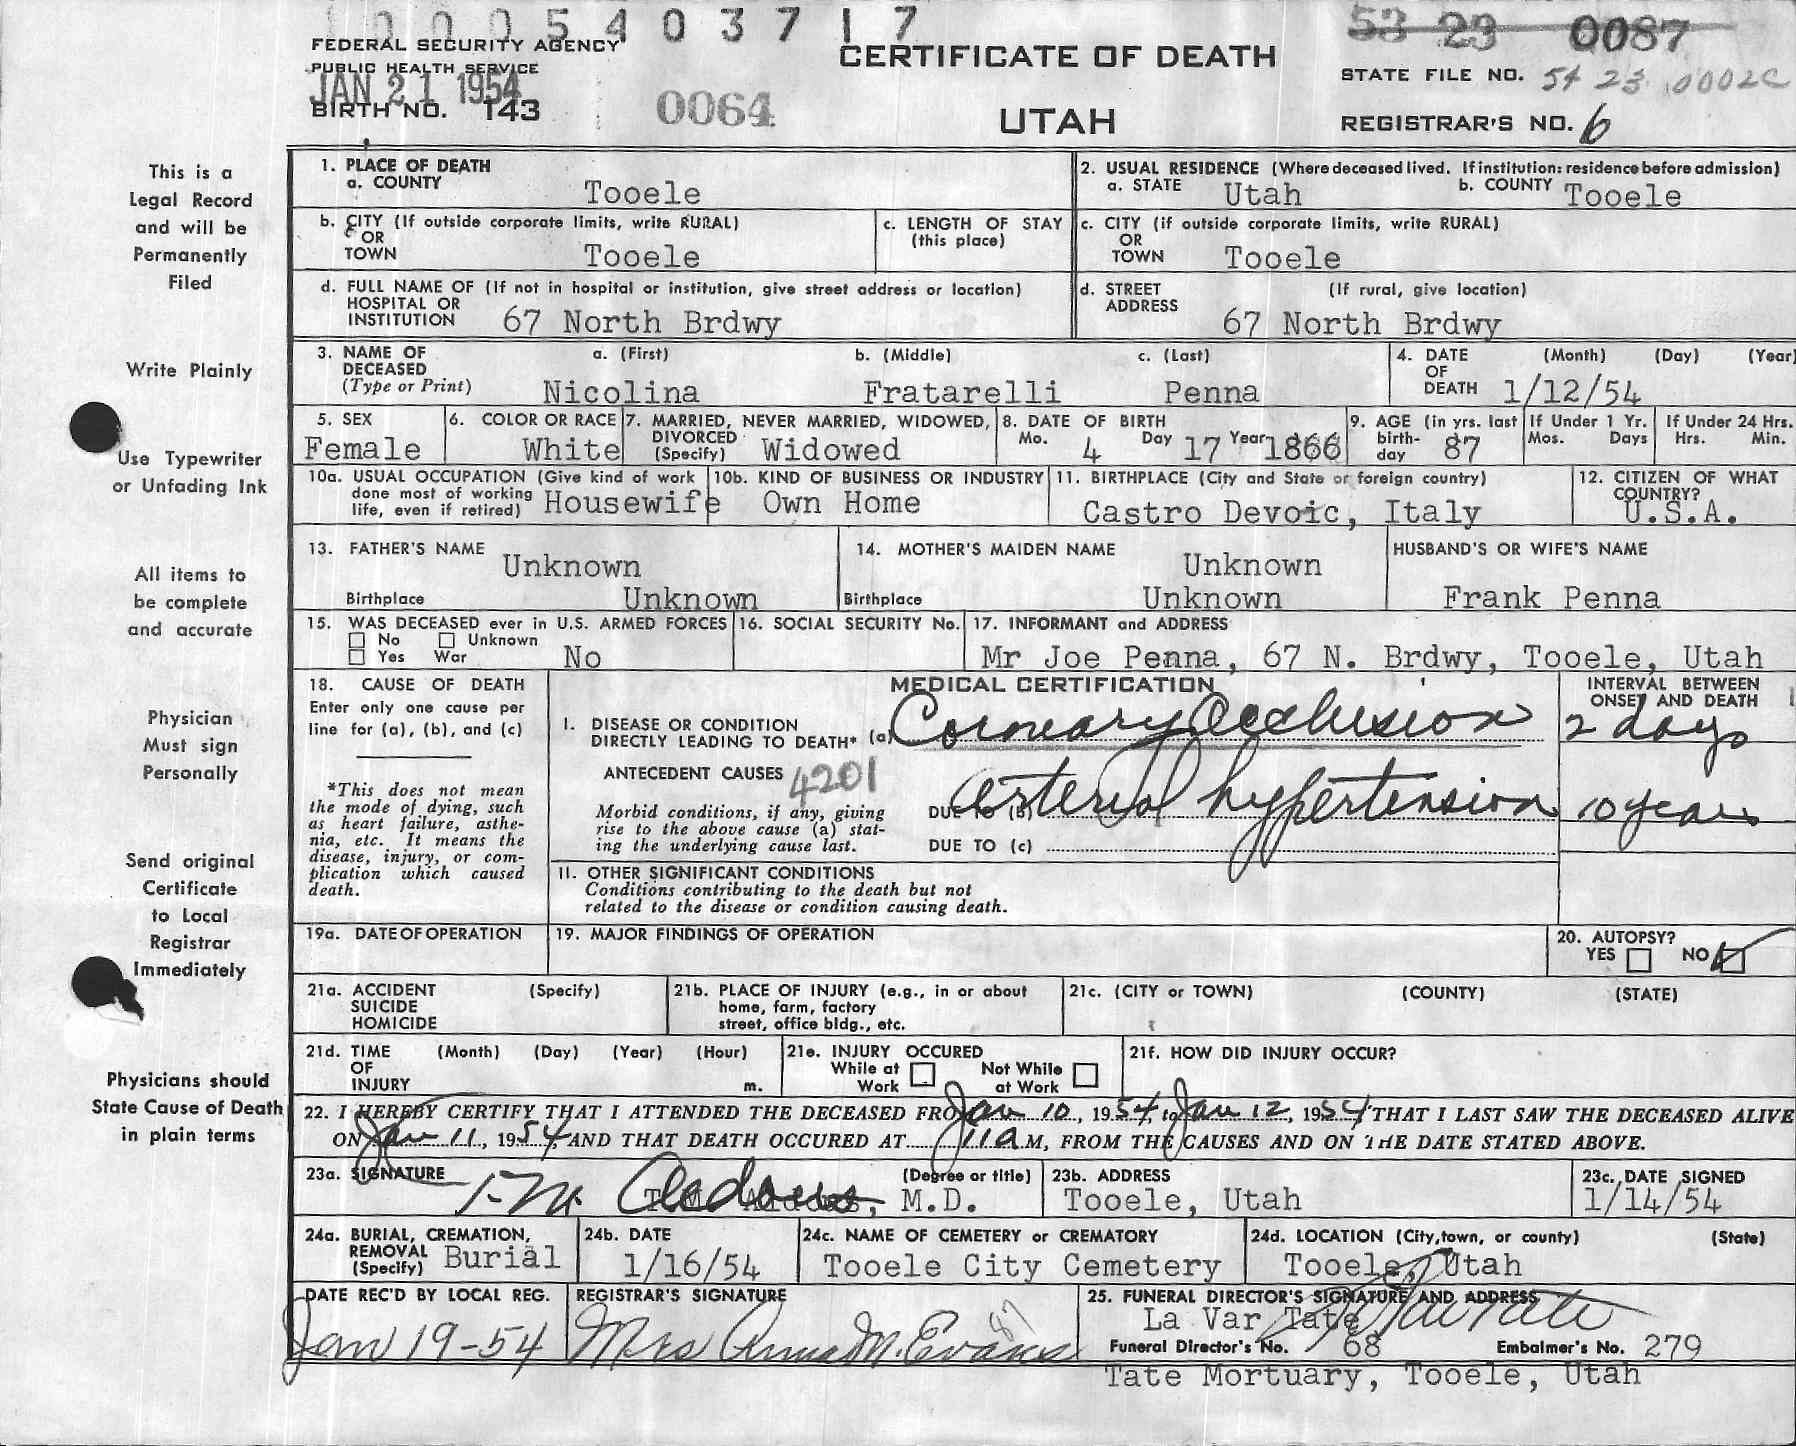 1 0 0 0 5 4 0 3 7 1 7
53 23 0087
FEDERAL SECURITY AGENCY
PUBLIC HEALTH SERVICE
JAN 21 1954
BIRTH NO. 143
0064
CERTIFICATE OF DEATH
UTAH
STATE FILE NO. 54 23 0002C
REGISTRAR'S NO. 6
This is a
Legal Record
and will be
Permanently
Filed
Write Plainly
Use Typewriter
or Unfading Ink
All items to
be complete
and accurate
Physician
Must sign
Personally
Send original
Certificate
to Local
Registrar
Immediately
Physicians should
State Cause of Death
in plain terms
1. PLACE OF DEATH
a. COUNTY Tooele
2. USUAL RESIDENCE (Where deceased lived. If institution: residence before admission)
a. STATE Utah b. COUNTY Tooele
b. CITY (If outside corporate limits, write RURAL)
OR
TOWN Tooele
c. LENGTH OF STAY
(this place)
c. CITY (if outside corporate limits, write RURAL)
OR
TOWN Tooele
d. FULL NAME OF (If not in hospital or institution, give street address or location)
HOSPITAL OR
INSTITUTION 67 North Brdwy
d. STREET (If rural, give location)
ADDRESS
67 North Brdwy
3. NAME OF a. (First) b. (Middle) c. (Last)
DECEASED
(Type or Print) Nicolina Fratarelli Penna
4. DATE (Month) (Day) (Year)
OF
DEATH 1/12/54
5. SEX
Female
6. COLOR OR RACE
White
7. MARRIED, NEVER MARRIED, WIDOWED,
DIVORCED
(Specify) Widowed
8. DATE OF BIRTH
Mo. 4 Day 17 Year 1866
9. AGE (in yrs. last
birth-
day 87
If Under 1 Yr.
Mos. Days
If Under 24 Hrs.
Hrs. Min.
10a. USUAL OCCUPATION (Give kind of work
done most of working
life, even if retired) Housewife
10b. KIND OF BUSINESS OR INDUSTRY
Own Home
11. BIRTHPLACE (City and State or foreign country)
Castro Devoic, Italy
12. CITIZEN OF WHAT
COUNTRY?
U.S.A.
13. FATHER'S NAME
Unknown
Birthplace Unknown
14. MOTHER'S MAIDEN NAME
Unknown
Birthplace Unknown
HUSBAND'S OR WIFE'S NAME
Frank Penna
15. WAS DECEASED ever in U.S. ARMED FORCES
No Unknown
Yes War No
16. SOCIAL SECURITY No.
17. INFORMANT and ADDRESS
Mr Joe Penna, 67 N. Brdwy, Tooele, Utah
18. CAUSE OF DEATH
Enter only one cause per
line for (a), (b), and (c)
*This does not mean
the mode of dying, such
as heart failure, asthe-
nia, etc. It means the
disease, injury, or com-
plication which caused
death.
MEDICAL CERTIFICATION
INTERVAL BETWEEN
ONSET AND DEATH
I. DISEASE OR CONDITION
DIRECTLY LEADING TO DEATH* (a) Coronary Occlusion 2 days
ANTECEDENT CAUSES 4201
Morbid conditions, if any, giving
rise to the above cause (a) stat-
ing the underlying cause last.
DUE TO (b) arterial hypertension 10 years
DUE TO (c)
II. OTHER SIGNIFICANT CONDITIONS
Conditions contributing to the death but not
related to the disease or condition causing death.
19a. DATE OF OPERATION
19. MAJOR FINDINGS OF OPERATION
20. AUTOPSY?
YES NO
21a. ACCIDENT (Specify)
SUICIDE
HOMICIDE
21b. PLACE OF INJURY (e.g., in or about
home, farm, factory
street, office bldg., etc.
21c. (CITY or TOWN) (COUNTY) (STATE)
21d. TIME (Month) (Day) (Year) (Hour)
OF
INJURY m.
21e. INJURY OCCURED
While at Work Not While at Work
21f. HOW DID INJURY OCCUR?
22. I HEREBY CERTIFY THAT I ATTENDED THE DECEASED FROM Jan 10, 1954, to Jan 12, 1954, THAT I LAST SAW THE DECEASED ALIVE
ON Jan 11, 1954, AND THAT DEATH OCCURED AT 11 a M, FROM THE CAUSES AND ON THE DATE STATED ABOVE.
23a. SIGNATURE (Degree or title)
T. M. Aldous, M.D.
23b. ADDRESS
Tooele, Utah
23c. DATE SIGNED
1/14/54
24a. BURIAL, CREMATION,
REMOVAL
(Specify) Burial
24b. DATE
1/16/54
24c. NAME OF CEMETERY or CREMATORY
Tooele City Cemetery
24d. LOCATION (City, town, or county) (State)
Tooele, Utah
DATE REC'D BY LOCAL REG.
Jan 19-54
REGISTRAR'S SIGNATURE
Mrs Anna M. Evans 87
25. FUNERAL DIRECTOR'S SIGNATURE AND ADDRESS
La Var Tate
Funeral Director's No. 68 Embalmer's No. 279
Tate Mortuary, Tooele, Utah